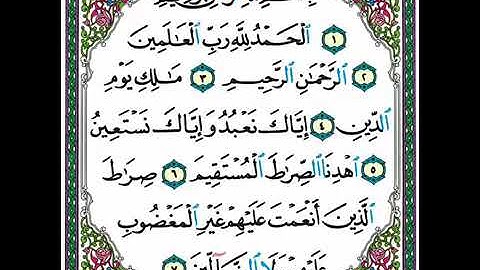 ١ ٱلْحَمْدُ لِلَّهِ رَبِّ ٱلْعَٰلَمِينَ
٢ ٱلرَّحْمَٰنِ ٱلرَّحِيمِ ٣ مَٰلِكِ يَوْمِ
ٱلدِّينِ ٤ إِيَّاكَ نَعْبُدُ وَإِيَّاكَ نَسْتَعِينُ
٥ ٱهْدِنَا ٱلصِّرَٰطَ ٱلْمُسْتَقِيمَ ٦ صِرَٰطَ
ٱلَّذِينَ أَنْعَمْتَ عَلَيْهِمْ غَيْرِ ٱلْمَغْضُوبِ
عَلَيْهِمْ وَلَا ٱلضَّآلِّينَ ٧